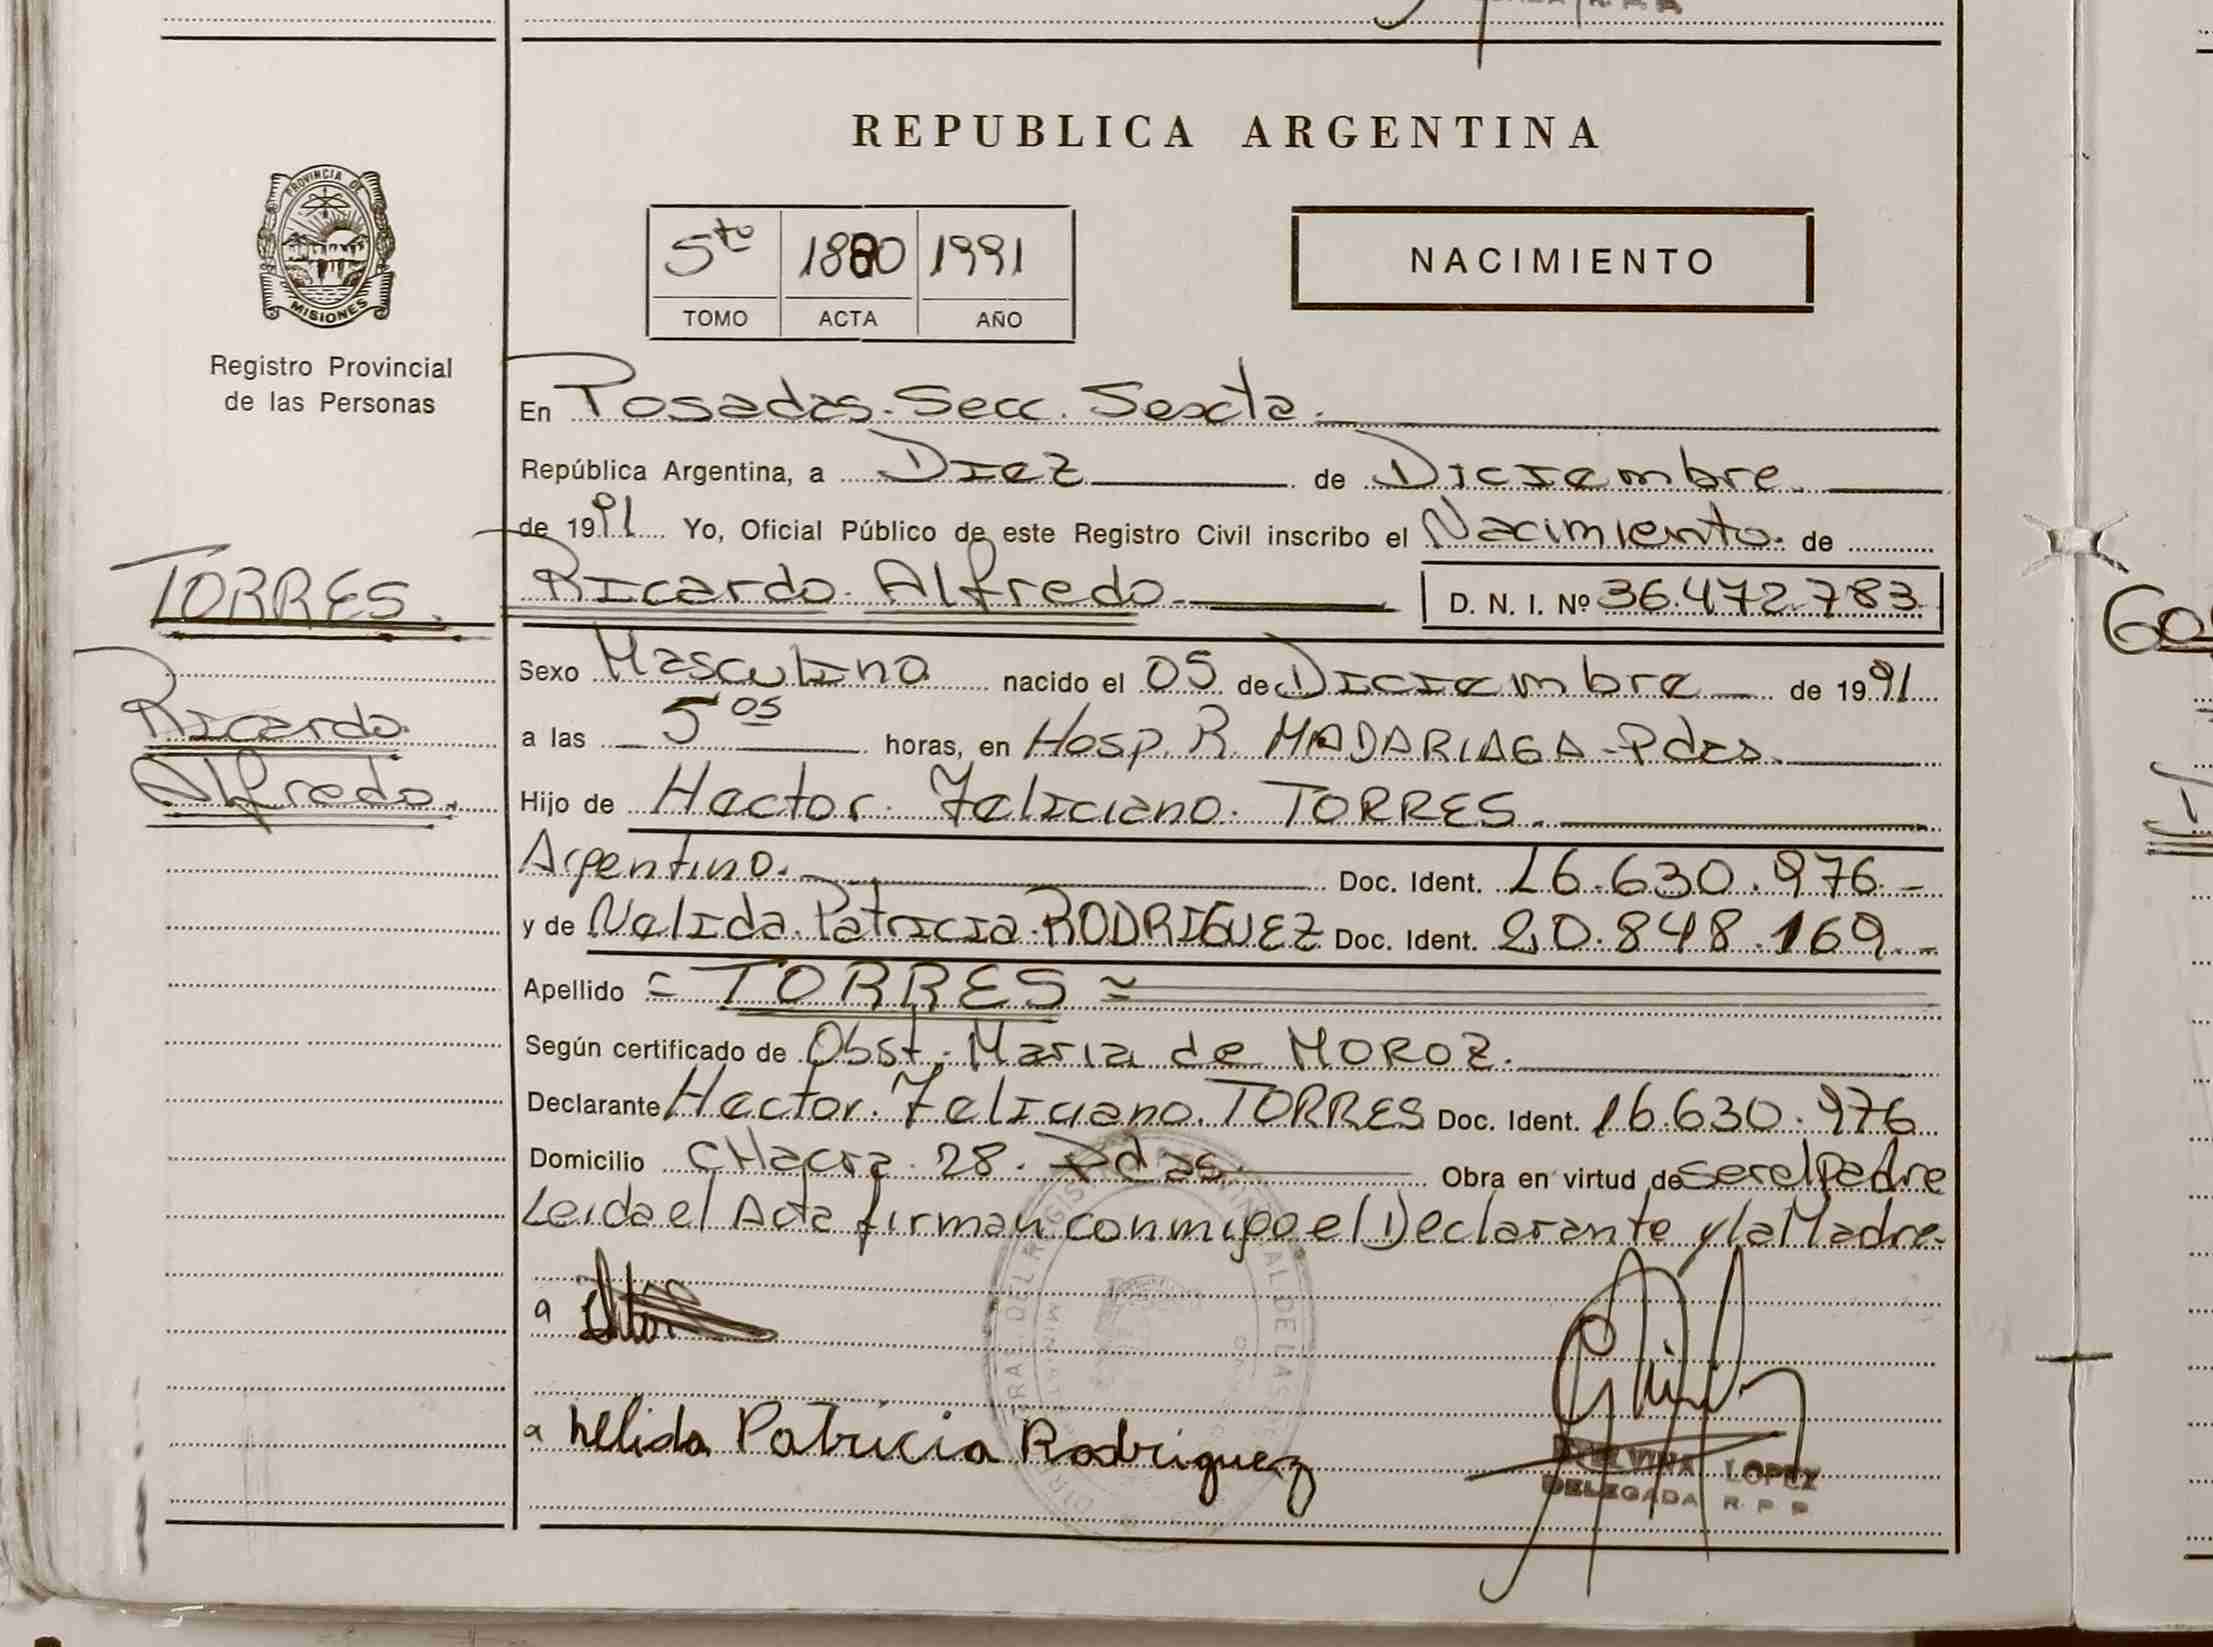 REPUBLICA ARGENTINA
PROVINCIA DE
MISIONES
Registro Provincial
de las Personas
5to 1880 1991
TOMO ACTA AÑO
NACIMIENTO
En Posadas. Secc. Sexta.
República Argentina, a Diez de Diciembre.
de 1991 Yo, Oficial Público de este Registro Civil inscribo el Nacimiento. de
TORRES.
Ricardo. Alfredo. D. N. I. Nº 36.472.783
Sexo Masculino nacido el 05 de Diciembre de 1991
Ricardo.
a las 5 05 horas, en Hosp. R. MADARIAGA - Pdas.
Alfredo.
Hijo de Hector. Feliciano. TORRES.
Argentino. Doc. Ident. 16.630.976.-
y de Nelida. Patricia. RODRIGUEZ Doc. Ident. 20.848.169.-
Apellido = TORRES =
Según certificado de Obst. Maria de MOROZ.
Declarante Hector. Feliciano. TORRES Doc. Ident. 16.630.976
Domicilio CHacra. 28. Pdas. Obra en virtud de ser el Padre
Leida el Acta firman conmigo el Declarante y la Madre.
a
a Nelida Patricia Rodriguez
LOPEZ
DELEGADA R. P. P.